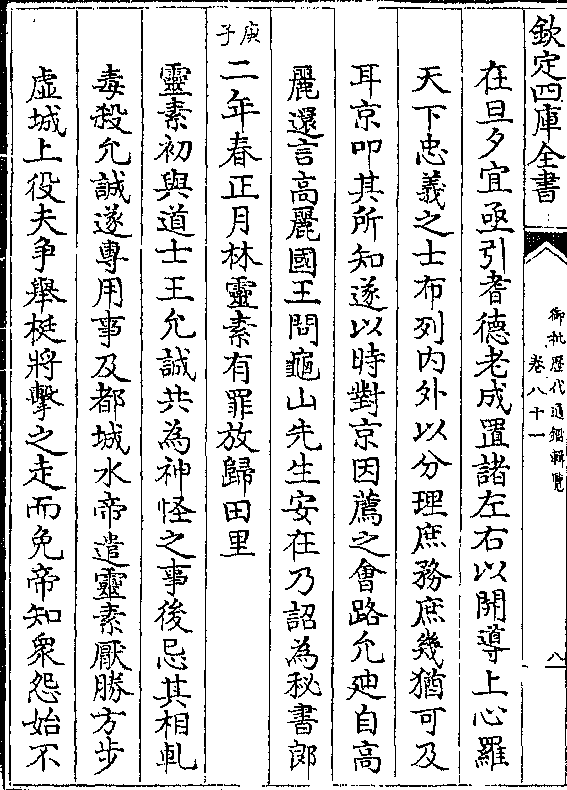 欽定四庫全書
御批歷代通鑑輯覽
卷八十一
八
在旦夕宜亟引耆德老成置諸左右以開導上心羅
天下忠義之士布列内外以分理庶務庶幾猶可及
耳京叩其所知遂以時對京因薦之會路允廸自高
麗還言高麗國王問龜山先生安在乃詔為秘書郎
庚子二年春正月林靈素有罪放歸田里
靈素初與道士王允誠共為神怪之事後忌其相軋
毒殺允誠遂專用事及都城水帝遣靈素厭勝方步
虚城上役夫爭舉梃將擊之走而免帝知衆怨始不